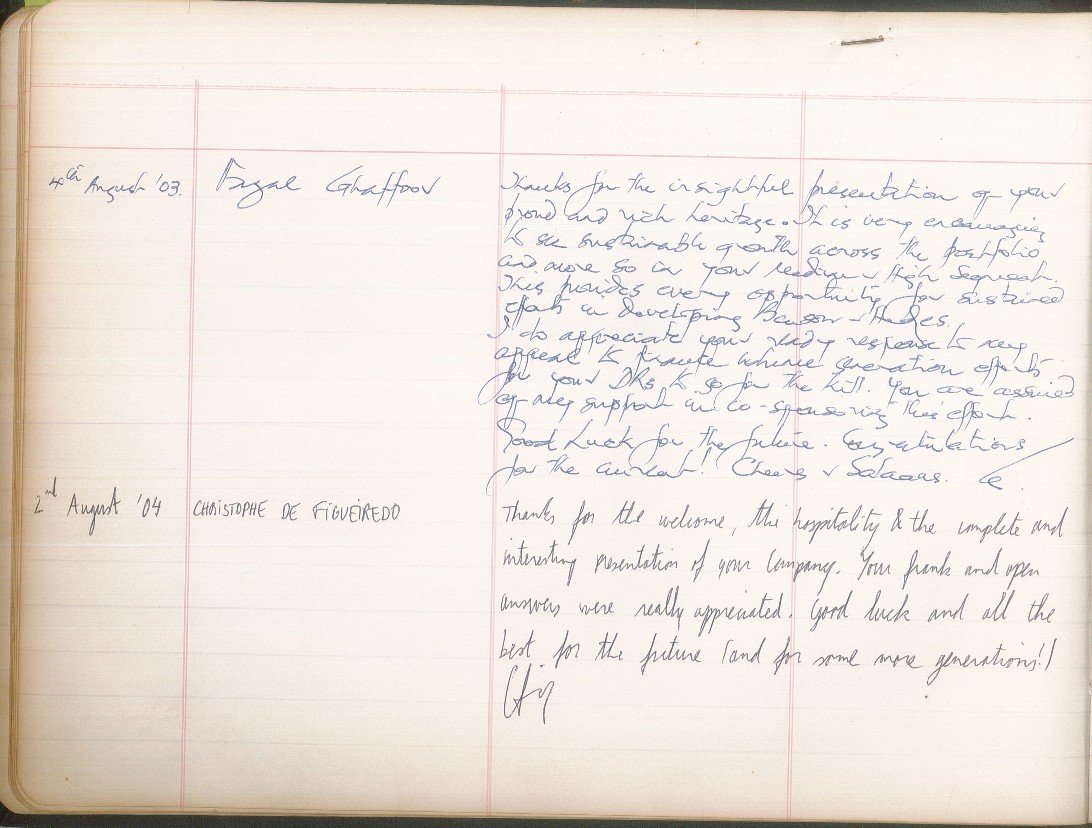 4th August '03. Fazal Ghaffoor
Thanks for the insightful presentation of your
proud and rich heritage. It is very encouraging
to see sustainable growth across the portfolio
and more so in your medium & High Segment.
This provides every opportunity for sustained
efforts in developing Benson & Hedges.
I do appreciate your ready response to my
appeal to finance volume generation efforts
for your DRs to go for the kill. You are assured
of my support in co-sponsoring this effort.
Good Luck for the future. Congratulations
for the current! Cheers & Salaams.
2nd August '04 CHRISTOPHE DE FIGUEIREDO
Thanks for the welcome, the hospitality & the complete and
interesting presentation of your Company. Your frank and open
answers were really appreciated. Good luck and all the
best for the future (and for some more generations!)